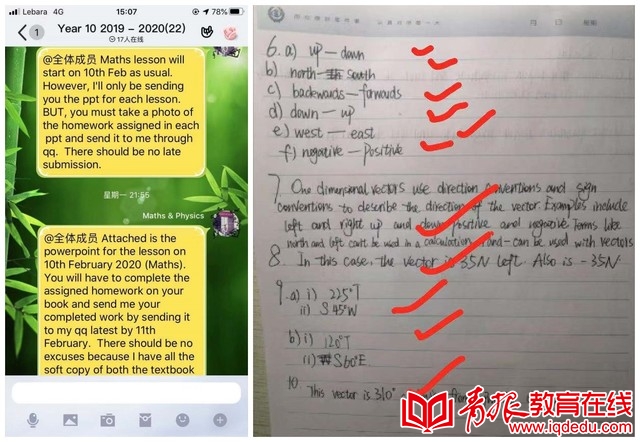 Lebara 4G
15:07
78%
1
Year 10 2019 – 2020(22)
17人在线
@全体成员 Maths lesson will
start on 10th Feb as usual.
However, I'll only be sending
you the ppt for each lesson.
BUT, you must take a photo of
the homework assigned in each
ppt and send it to me through
qq. There should be no late
submission.
星期一 21:55
Maths & Physics
@全体成员 Attached is the
powerpoint for the lesson on
10th February 2020 (Maths).
You will have to complete the
assigned homework on your
book and send me your
completed work by sending it
to my qq latest by 11th
February. There should be no
excuses because I have all the
soft copy of both the textbook
6. a) up — down
b) north — south
c) backwards — forwards
d) down — up
e) west — east
f) negative — positive
7. One dimensional vectors use direction conventions and sign
conventions to describe the direction of the vector. Examples include
left and right up and down positive and negative Terms like
north and left can't be used in a calculation + and - can be used with vectors
8. In this case, the vector is 35N left. Also is -35N.
9. a) i) 225°T
ii) S45°W
b) i) 120°T
ii) S60°E
10. This vector is 310°
青报教育在线
www.iqdedu.com